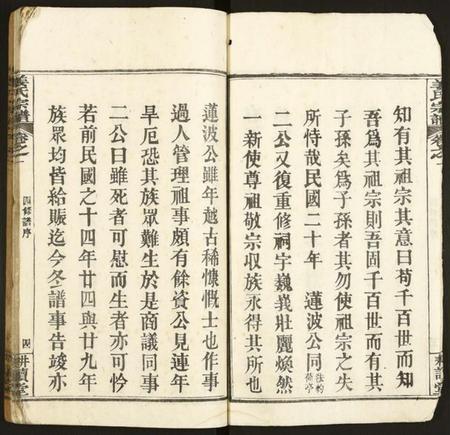 知有其祖宗其意曰苟千百世而知
吾爲其祖宗則吾固千百世而有其
子孫矣爲子孫者其勿使祖宗之失
所恃哉民國二十年 蓮波公同
二公又復重修祠宇巍峩壯麗煥然
一新使尊祖敬宗収族永得其所也
蓮波公雖年越古稀慷慨士也作事
過人管理祖事頗有餘資公見連年
旱厄恐其族眾難生於是商議同事
二公曰雖死者可慰而生者亦可怜
若前民國之十四年廿四與廿九年
族眾均皆給賑迄今冬譜事告竣亦
姜氏宗譜 卷之一 四修譜序 四 耕讀堂